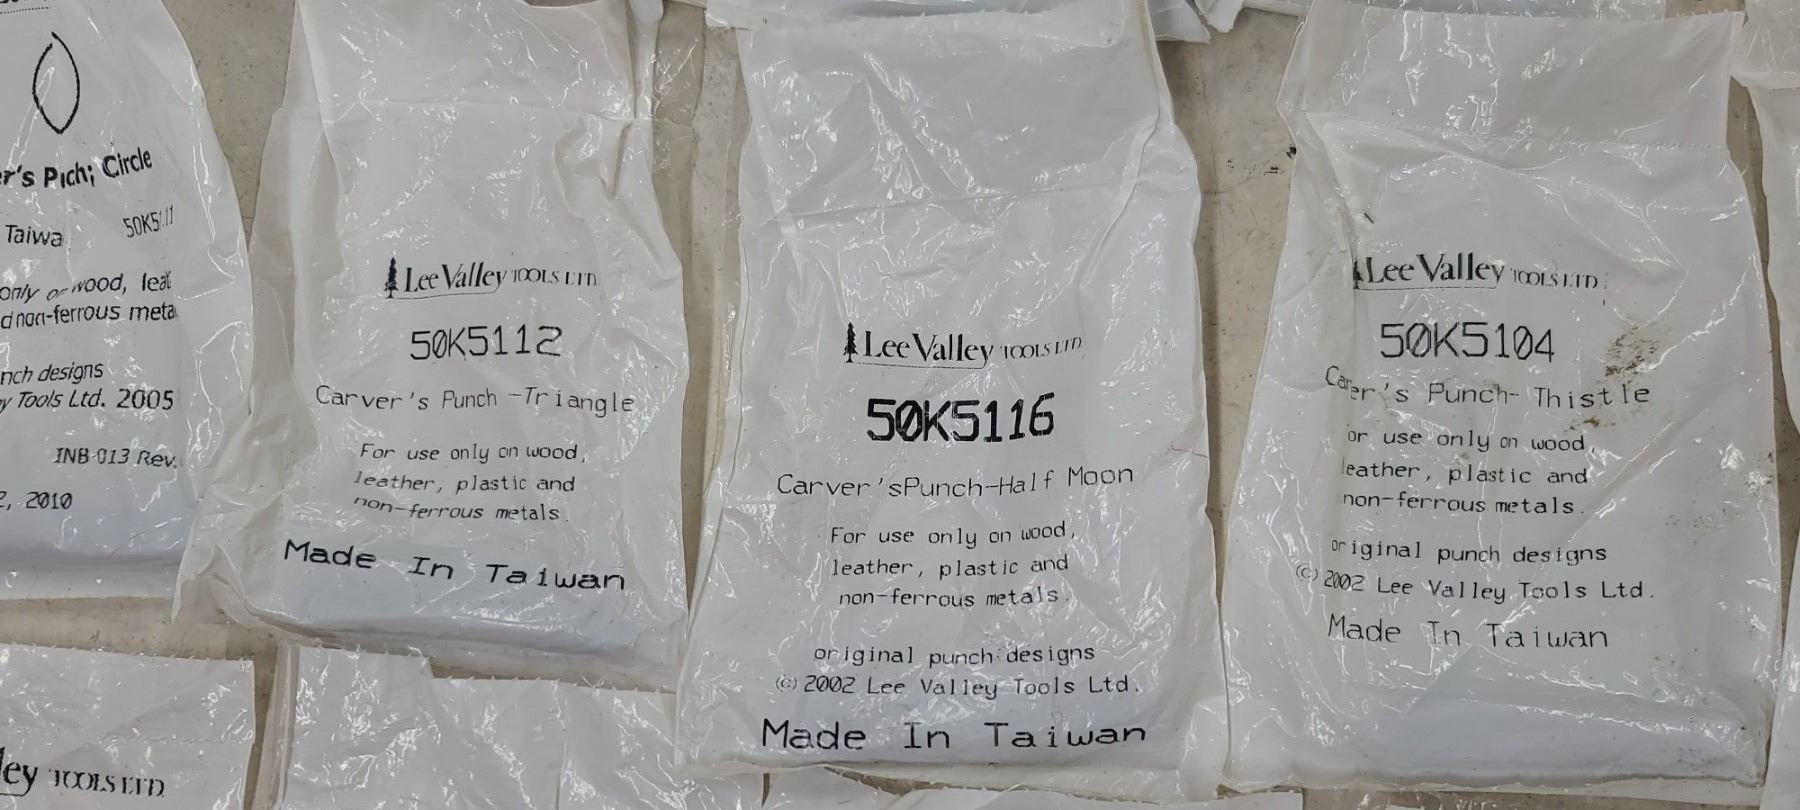 r's Pich; Circle
Taiwa
50K5111
only or wood, leat
d non-ferrous meta
nch designs
y Tools Ltd. 2005
INB-013 Rev.
2, 2010
Lee Valley TOOLS LTD
50K5112
Carver's Punch -Triangle
For use only on wood,
leather, plastic and
non-ferrous metals.
Made In Taiwan
Lee Valley TOOLS LTD
50K5116
Carver'sPunch-Half Moon
For use only on wood,
leather, plastic and
non-ferrous metals.
original punch designs
(c) 2002 Lee Valley Tools Ltd.
Made In Taiwan
Lee Valley TOOLS LTD
50K5104
Carver's Punch- Thistle
or use only on wood,
leather, plastic and
non-ferrous metals.
original punch designs
(c) 2002 Lee Valley Tools Ltd.
Made In Taiwan
ley TOOLS LTD